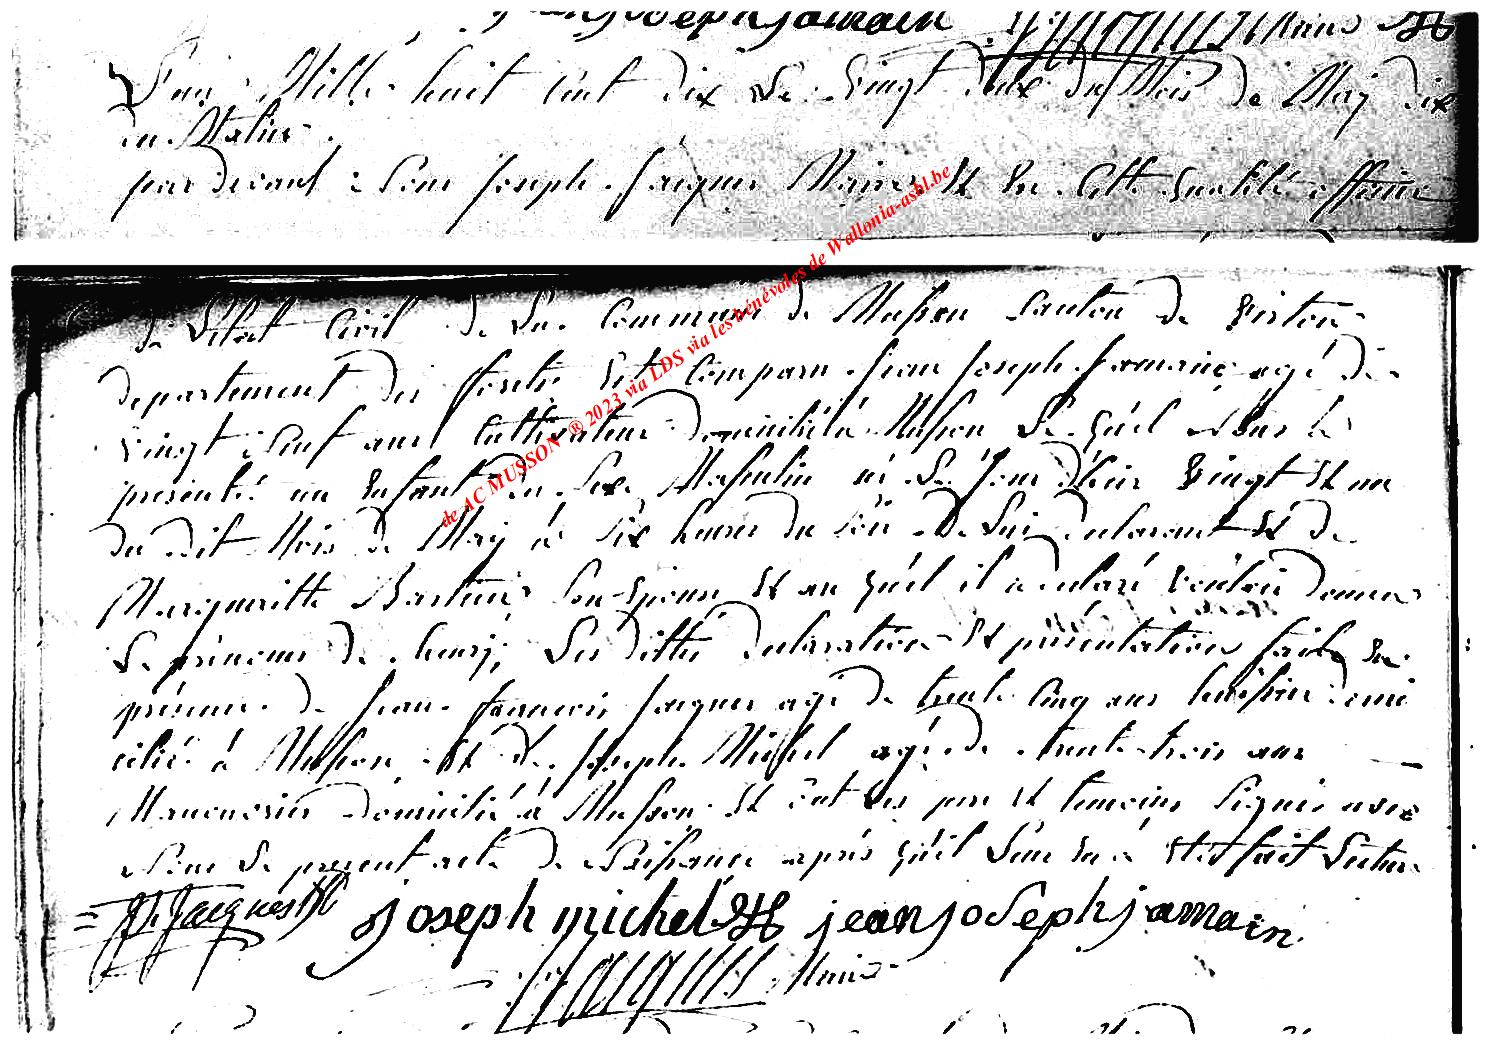 jean joseph jamain Maire
L'an Mille huit Cent dix Le Vingt deux du Mois de Maÿ dix
du Matin
par devant Nous Joseph Jacques Maire Et En Cette qualité officier
de L'état Civil de La Commune de Musson Canton de Virton
departement des forêts Est Comparu Jean Joseph Jamain agé de
vingt neuf ans Cultivateur domicilié à Musson Le quel Nous à
presenté un Enfant du Sexe Masculin né Le Jour d'hier Vingt Et un
du dit Mois de Maÿ à Six heures du soir De Lui declarant Et de
Margueritte Son Epouse Et au quel il a declaré vouloir donner
Le prenom de henrÿ Les dittes declaration Et présentation faite En
présence de Jean francois Jacques agé de trente Cinq ans domi
cilié à Musson Et de Joseph Michel agé de trente trois ans
Manouvrier domicilié à Musson Et ont Les pere Et temoins Signés avec
Nous Le present acte de Naissance après qu'il Leur En a Eté fait Lecture
J f Jacques joseph michel jean joseph jamain
Maire
de AC MUSSON ® 2023 via LDS via les bénévoles de Wallonia-asbl.be